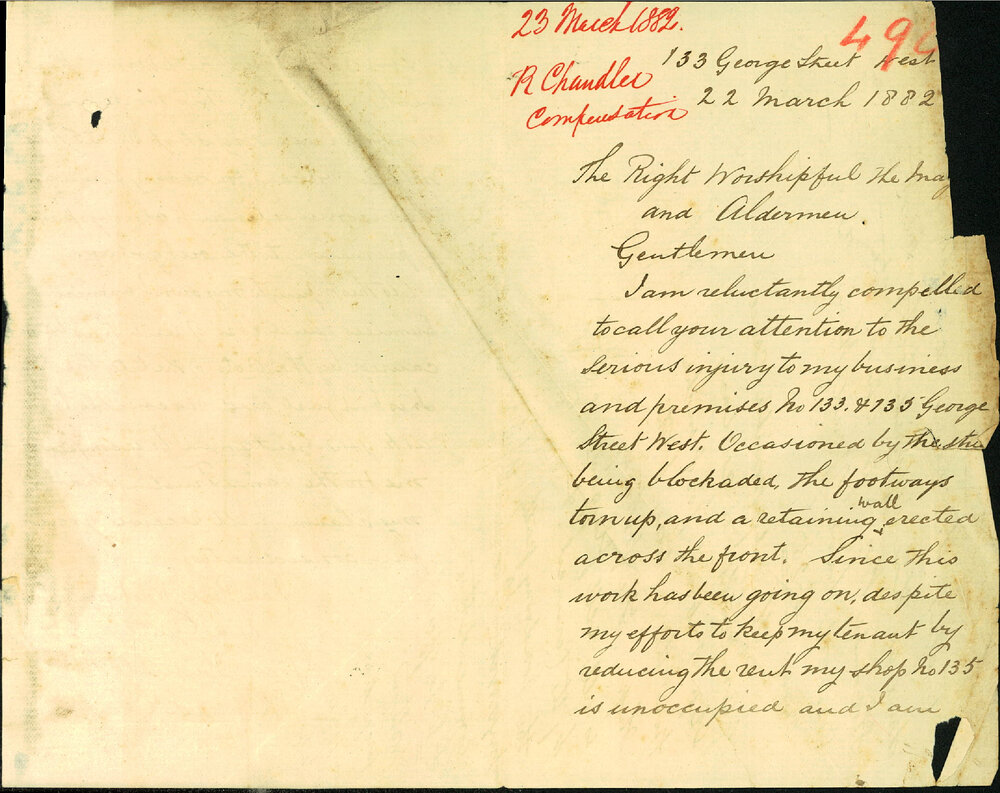 23 March 1882.
R Chandler
Compensation
494
133 George Street West
22 March 1882
The Right Worshipful the May
and Aldermen.
Gentlemen
I am reluctantly compelled
to call your attention to the
serious injury to my business
and premises No 133. & 135 George
Street West. Occasioned by the stre
being blockaded, the footways
torn up, and a retaining wall erected
across the front. Since this
work has been going on, despite
my efforts to keep my tenant by
reducing the rent my shop No 135
is unoccupied and I am